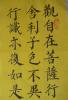 觀自在菩薩行
舍利子色不異
行識亦復如是